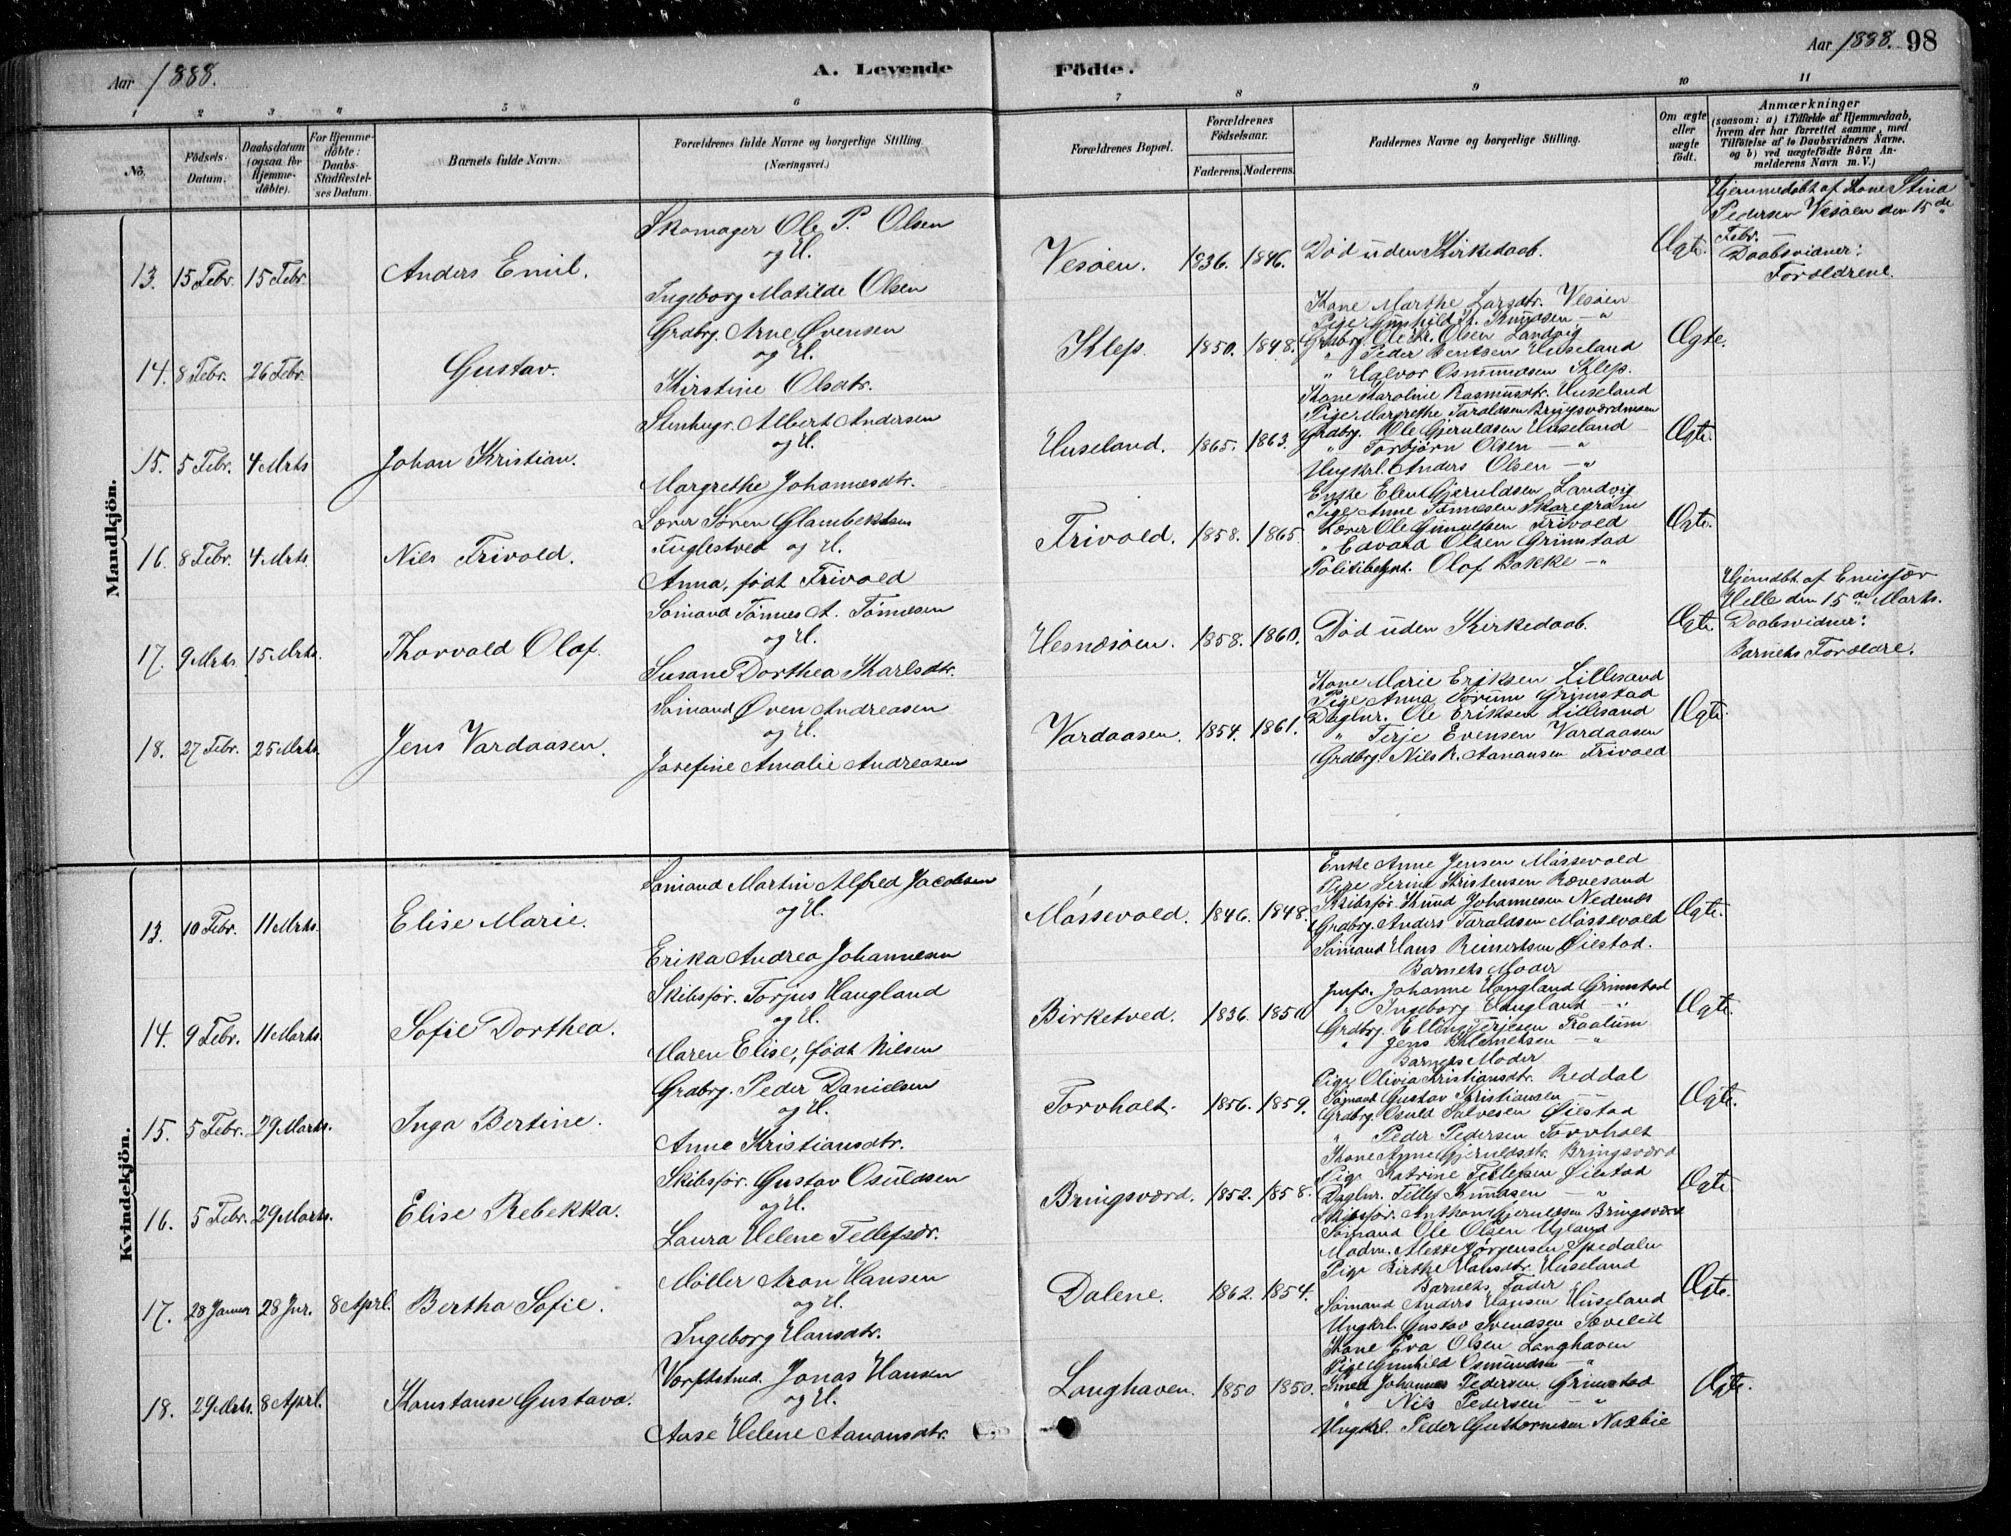 Aar 1888.
A. Levende Födte.
Aar 1888. 98
1 2 3 4 5 6 7 8 9 10 11
No.
Födsels-Datum.
Daabsdatum (ogsaa for Hjemmedöbte).
For Hjemmedöbte: Daabs-Stadfæstelses Datum.
Barnets fulde Navn.
Forældrenes fulde Navne og borgerlige Stilling. (Næringsvei.)
Forældrenes Bopæl.
Forældrenes Födselsaar.
Faderens. Moderens.
Faddernes Navne og borgerlige Stilling.
Om ægte eller uægte födt.
Anmærkninger
(saasom: a) i Tilfælde af Hjemmedaab,
hvem der har forrettet samme, med
Tilföielse af to Daabsvidners Navne,
og b) ved uægtefödte Börn Anmelderens Navn m. V.)
Mandkjön.
13. 15 Febr. 15 Febr. Anders Emil.
Skomager Ole P. Olsen
og H.
Ingeborg Matilde Olsen
Vesøen. 1836. 1846. Død uden Kirkedaab. Ægte.
Hjemmedøbt af Kone Stina
Pedersen Vesøen den 15de
Febr.
Daabsvidner:
Forældrene.
14. 8 Febr. 26 Febr. Gustav.
Grdbrg. Arne Øvensen
og H.
Kirstine Olsdtr.
Klep. 1850. 1848.
Kone Marthe Larsdtr. Vesøen
Pige Gunhild K. Knudsen — "
Grdbrg. Ole Kr. Olsen Landvig
" Peder Bentsen Huseland
" Halvor Osmundsen Klep.
Ægte.
15. 5 Febr. 4 Mrts Johan Kristian.
Stenhugr. Albert Andersen
og H.
Margrethe Johannesdtr.
Huseland. 1865. 1863.
Kone Karoline Rasmusdtr. Huseland
Pige Margrethe Taraldsen Bringsværdmoen
Grdbrg. Ole Gjeruldsen Huseland
" Torbjørn Olsen — "
Ungkrl. Anders Olsen — "
Ægte.
16. 8 Febr. 4 Mrts Nils Trivold.
Lærer Søren Glambeksen
Fuglestved og H.
Anna, født Trivold
Trivold. 1858. 1865.
Enke Elen Gjeruldsen Landvig
Pige Anne Tønnesen Skaregrøm
Lærer Ole Gunulfsen Trivold
" Edvard Olsen Grimstad
Politibetjnt. Olaf Bakke — "
Ægte.
17. 9 Mrts. 15 Mrts. Thorvald Olaf.
Sømand Tønnes A. Tønnesen
og H.
Susane Dorthea Karlsdtr.
Hesnæsøen. 1858. 1860. Død uden Kirkedaab. Ægte
Hjemdbt. af Emisfær
Helle den 15de Marts.
Daabsvidner:
Barnets Forældre.
18. 27 Febr. 25 Mrts. Jens Vardaasen.
Sømand Øven Andreasen
og H.
Josefine Amalie Andreasen
Vardaasen. 1854. 1861.
Kone Marie Eriksen Lillesand
Pige Anna Sørum Grimstad
Daglnr. Ole Eriksen Lillesand
" Terje Evensen Vardaasen
Grdbrg. Nils R. Aanansen Trivold
Ægte.
Kvindekjön.
13. 10 Febr. 11 Mrts. Elise Marie.
Sømand Martin Alfred Jacobsen
og H.
Erika Andrea Johannesen
Møssevold. 1846. 1848.
Enke Anne Jensen Møssevold
Pige Serine Kristensen Rævesand
Skibsfør. Knud Johannesen Nedenæs
Grdbrg. Anders Taraldsen Møssevold
Sømand Hans Reinertsen Øiestad.
Ægte.
14. 9 Febr. 11 Marts. Sofie Dorthea.
Skibsfør. Torjus Haugland
og H.
Maren Elise, født Nilsen
Birketved. 1836. 1850
Barnets Moder
Jmfr. Johanne Haugland Grimstad
" Ingeborg Haugland — "
Grdbrg. Elling Terjesen Traalum
" Jens Klemetsen — "
Ægte.
15. 5 Febr. 29 Marts. Inga Bertine.
Grdbrg. Peder Danielsen
og H.
Anne Kristiansdtr.
Torvholt. 1856. 1859.
Barnets Moder
Pige Olivia Kristiansdtr. Reddal
Sømand Gustav Kristiansen —
Grdbrg. Osuld Salvesen Øiestad
" Peder Pedersen Torvholt
Ægte.
16. 5 Febr. 29 Marts. Elise Rebekka.
Skibsfør. Gustav Osuldsen
og H.
Laura Helene Tellefsdr.
Bringsværd. 1852. 1858.
Kone Anne Gjeruldsdtr. Bringsværd
Pige Katrine Tellefsen Øiestad
Daglnr. Tellef Knudsen — "
Skibsfør. Anthon Gjeruldsen Bringsværd
Sømand Ole Olsen Ugland
Ægte
17. 28 Januar 28 Jnr. 8 Aprl. Bertha Sofie.
Møller Aron Hansen
og H.
Ingeborg Hansdtr.
Dalene. 1862. 1854.
Madm. Jørgensen Spedalen
Pige Birthe Hansdtr. Huseland
Barnets Fader
Sømand Anders Hansen Huseland
Ungkrl. Gustav Svendsen Sæveleid
Ægte.
18. 29 Mrts. 8 Aprl. Konstanse Gustava.
Værftstmd. Jonas Hansen
og H.
Aase Helene Aanonsdtr.
Langhaven. 1850 1850.
Kone Eva Olsen Langhaven
Pige Gunhild Osmundsen "
Johannes Pedersen Grimstad
" Nils Pedersen — "
Ungkrl. Peder Guttormsen Naxbie
Ægte.